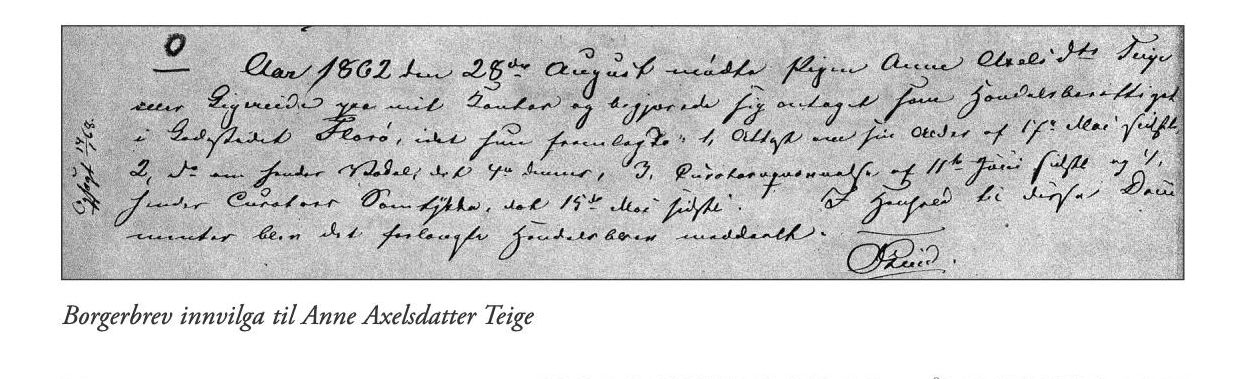 0
Aar 1862 den 28de August mødte Pigen Anne Axelsdtr Teige
eller Gigereide paa mit Contor og begjærede sig antaget som Handelsberettiget
i Ladestedet Florø, idet hun fremlagde: 1, Attest om sin Alder af 17de Mai sidstl.
2, do om hendes Vandel, dat. 4de dennes, 3, Curatorudnævnelse af 11te Juni sidstl og 4,
hendes Curators Samtykke, dat 15de Mai sidstl. I Henhold til disse Docu
menter blev det forlangte Handelsbrev meddeelt.
Opsagt 14/1 68.
Borgerbrev innvilga til Anne Axelsdatter Teige